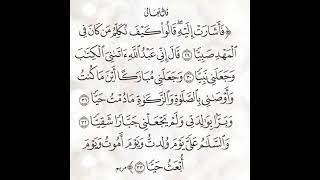 قال تعالى
﴿فَأَشَارَتْ إِلَيْهِ ۖ قَالُوا۟ كَيْفَ نُكَلِّمُ مَن كَانَ فِى
ٱلْمَهْدِ صَبِيًّا ٢٩ قَالَ إِنِّى عَبْدُ ٱللَّهِ ءَاتَىٰنِىَ ٱلْكِتَٰبَ
وَجَعَلَنِى نَبِيًّا ٣٠ وَجَعَلَنِى مُبَارَكًا أَيْنَ مَا كُنتُ
وَأَوْصَٰنِى بِٱلصَّلَوٰةِ وَٱلزَّكَوٰةِ مَا دُمْتُ حَيًّا ٣١
وَبَرًّۢا بِوَٰلِدَتِى وَلَمْ يَجْعَلْنِى جَبَّارًا شَقِيًّا ٣٢
وَٱلسَّلَٰمُ عَلَىَّ يَوْمَ وُلِدتُّ وَيَوْمَ أَمُوتُ وَيَوْمَ
أُبْعَثُ حَيًّا ٣٣﴾ مريم